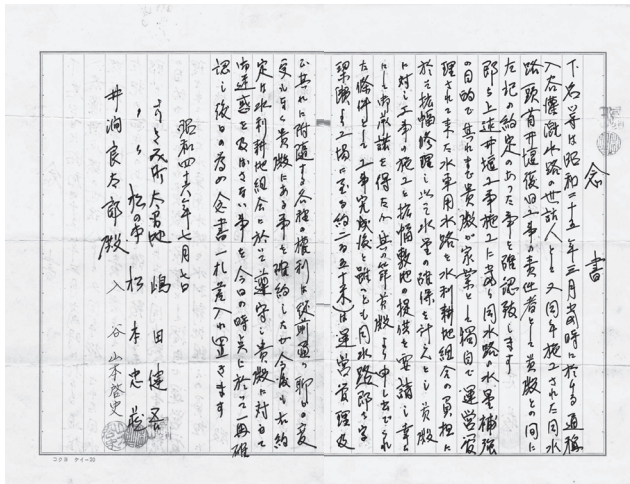 念書
下名等は昭和二十五年三月当時に於ける通称
入谷灌漑水路の世話人として又同年施工された同水
路頭首井堰復旧工事の責任者として貴殿との間に
左記の約定のあった事を確認致します
即ち上述井堰工事施工に当り同水路の水量補強
の目的で其れまで貴殿が家業として個自で運営管
理されて来た水車用水路を水利耕地組合の負担に
於て拡幅修理し以て水量の確保を計らんとし貴殿
に対し工事の施工と拡幅敷地の提供を要請し幸
にして御承諾を得たが其の節貴殿より申し出でられ
た條件として工事完成後と雖ども同水路即ち字
より工場に至る約二百五十米は運営管理及
び其れに附随する各種の権利は従前通り聊か変
更もなく貴殿にある事を確約したが今後も右約
定は水利耕地組合に於いて遵守し貴殿に対して
御迷惑を及ぼさない事を今日の時点に於いて再確
認し後日の為め念書一札差入れ置きます
昭和四十六年七月七日
町大字 嶋田健吾
松の中 松本忠蔵
入谷 山本啓史
井澗良太郎殿
コクヨ ケイ-20